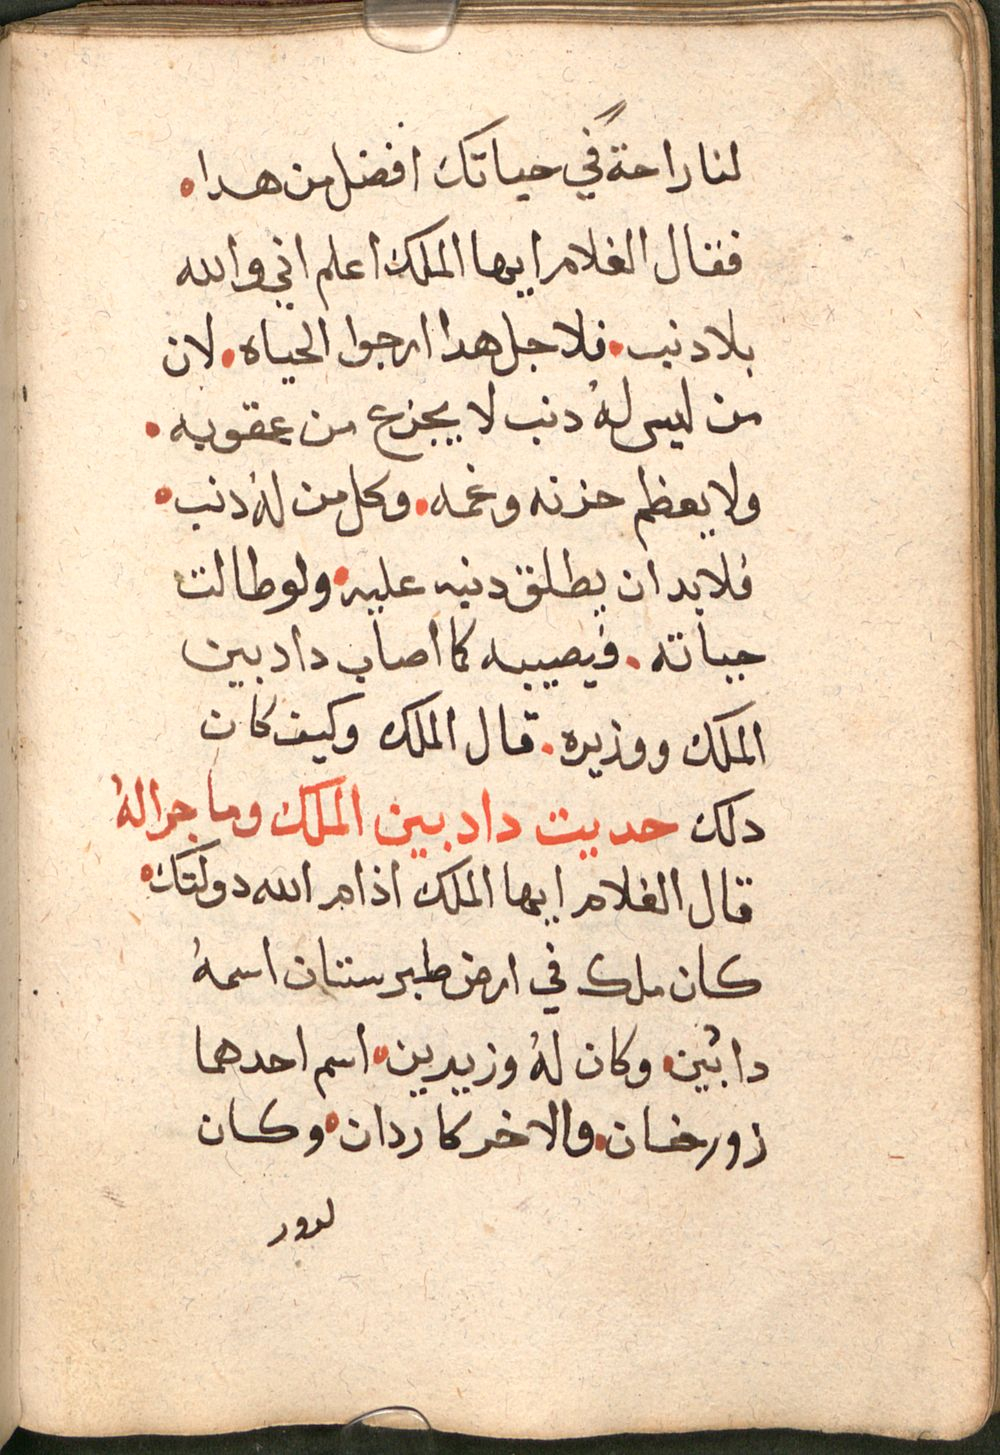 لنا راحةً في حياتك افضل من هدا.
فقال الغلام ايها الملك اعلم اني والله
بلا دنب. فلاجل هدا ارجوا الحياه. لان
من ليس لهُ دنب لا يجزع من عقوبه.
ولا يعظم حزنه وغمه. وكل من لهُ دنب.
فلا بد ان يطلق دنبه عليه. ولو طالت
حياته. فيصيبه كما اصاب دادبين
الملك ووزيره. قال الملك وكيف كان
دلك حديت دادبين الملك وما جرا لهُ
قال الغلام ايها الملك اذام الله دولتك.
كان ملك في ارض طبرستان اسمهُ
دابين. وكان لهُ وزيرين. اسم احدهما
زورخان. والاخر كاردان. وكان
لزور